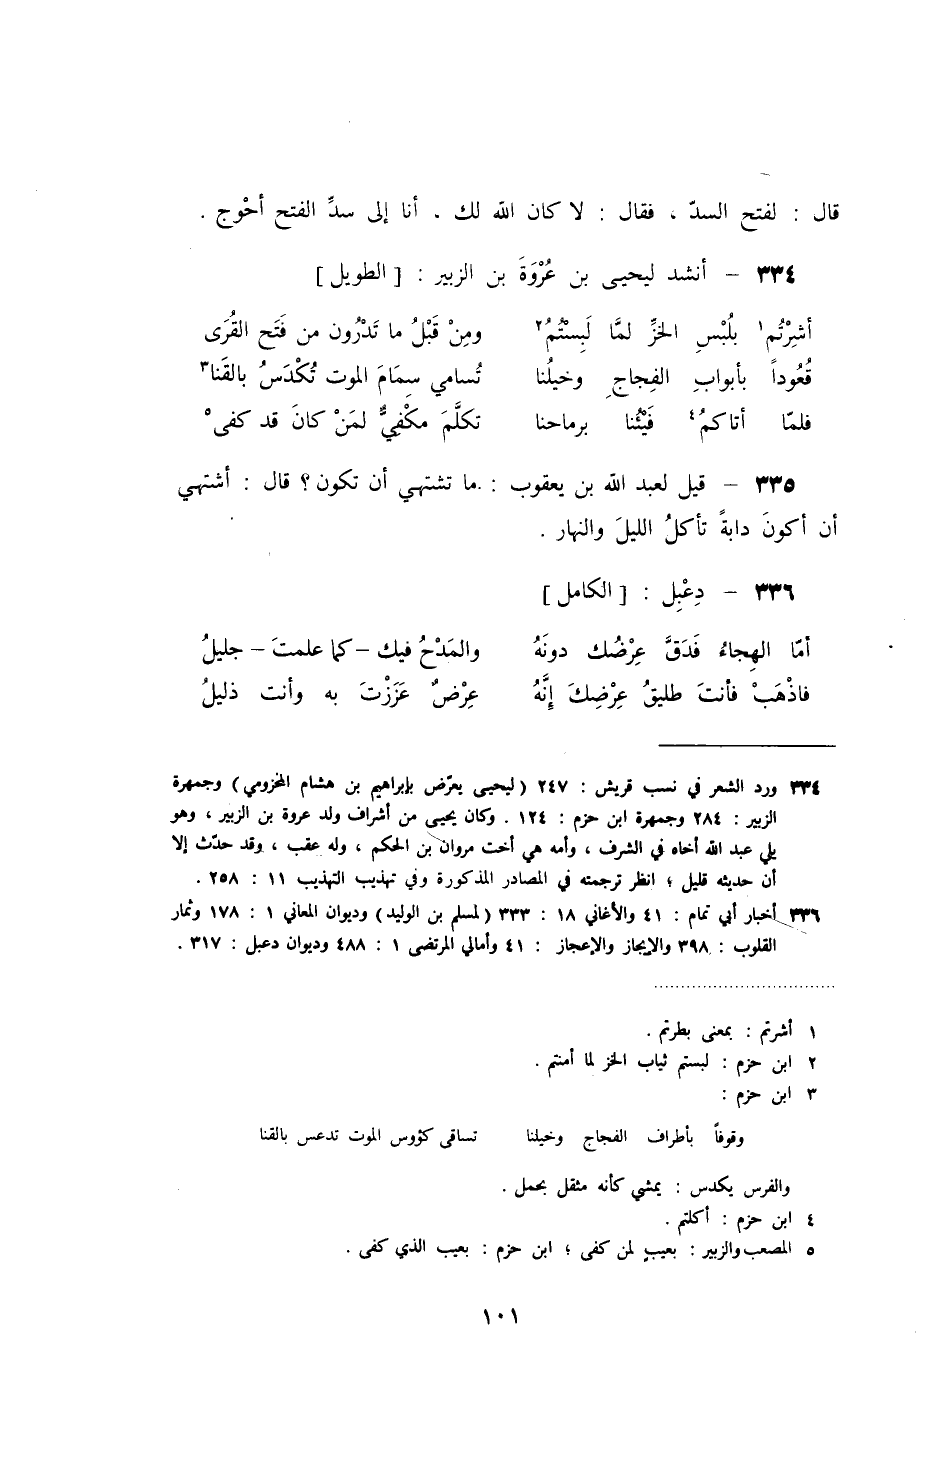 قال : لفتح السدّ ، فقال : لا كان الله لك . أنا إلى سدِّ الفتح أحْوج .
٣٣٤ – أنشد ليحيى بن عُرْوَةَ بن الزبير : [ الطويل ]
أشِرْتُم١ بلُبْسِ الخزِّ لمَّا لَبِسْتُمُ٢ ومِنْ قَبْلُ ما تَدْرُون من فَتَح القُرَى
قُعُوداً بأبوابِ الفِجاجِ وخيلُنا تُسامي سِمَامَ الموت تُكْدَسُ بالقَنا٣
فلمّا أتاكمُ٤ فَيْئُنا برماحنا تكلَّمَ مكْفِيٌّ لمَنْ كانَ قد كفى٥
٣٣٥ – قيل لعبد الله بن يعقوب : ما تشتهي أن تكون ؟ قال : أشتهي
أن أكونَ دابةً تأكلُ الليلَ والنهار .
٣٣٦ – دِعْبِل : [ الكامل ]
أمّا الهِجاءُ فَدَقَّ عِرْضُك دونَهُ والمَدْحُ فيك – كما علمتَ – جليلُ
فاذْهَبْ فأنتَ طليقُ عِرْضِكَ إنَّهُ عِرْضٌ عَزَزْتَ به وأنت ذليلُ
٣٣٤ ورد الشعر في نسب قريش : ٢٤٧ ( ليحيى يعرّض بإبراهيم بن هشام المخزومي ) وجمهرة
الزبير : ٢٨٤ وجمهرة ابن حزم : ١٢٤ . وكان يحيى من أشراف ولد عروة بن الزبير ، وهو
يلي عبد الله أخاه في الشرف ، وأمه هي أخت مروان بن الحكم ، وله عقب ، وقد حدّث إلا
أن حديثه قليل ؛ انظر ترجمته في المصادر المذكورة وفي تهذيب التهذيب ١١ : ٢٥٨ .
٣٣٦ أخبار أبي تمام : ٤١ والأغاني ١٨ : ٣٣٣ ( لمسلم بن الوليد ) وديوان المعاني ١ : ١٧٨ وثمار
القلوب : ٣٩٨ والايجاز والإعجاز : ٤١ وأمالي المرتضى ١ : ٤٨٨ وديوان دعبل : ٣١٧ .
١ أشرتم : بمعنى بطرتم .
٢ ابن حزم : لبستم ثياب الخز لما أمنتم .
٣ ابن حزم :
وقوفاً بأطراف الفجاج وخيلنا تساقى كؤوس الموت تدعس بالقنا
والفرس يكدس : يمشي كأنه مثقل بحمل .
٤ ابن حزم : أكلتم .
٥ المصعب والزبير : بعيبٍ لمن كفى ؛ ابن حزم : بعيب الذي كفى .
١٠١